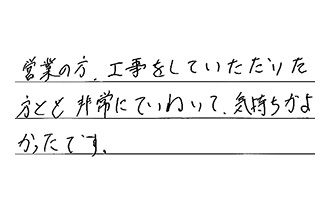 営業の方、工事をしていただいた
方とも非常にていねいで、気持ちがよ
かったです。